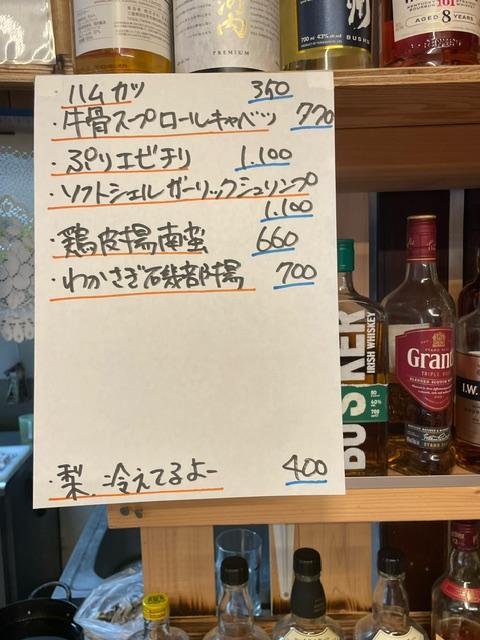 河内
PREMIUM
州
700ml 43%
BUSH
101
AGED 8 YEARS
ハムカツ 350
・牛骨スープロールキャベツ 770
・ぷりエビチリ 1.100
・ソフトシェルガーリックシュリンプ
1.100
・鶏皮揚南蛮 660
・わかさぎ石磯部揚 700
・梨、冷えてるよー 400
BUSKER
IRISH WHISKEY
Grant
TRIPLE
BLENDED SCOTCH WHISKY
I.W.